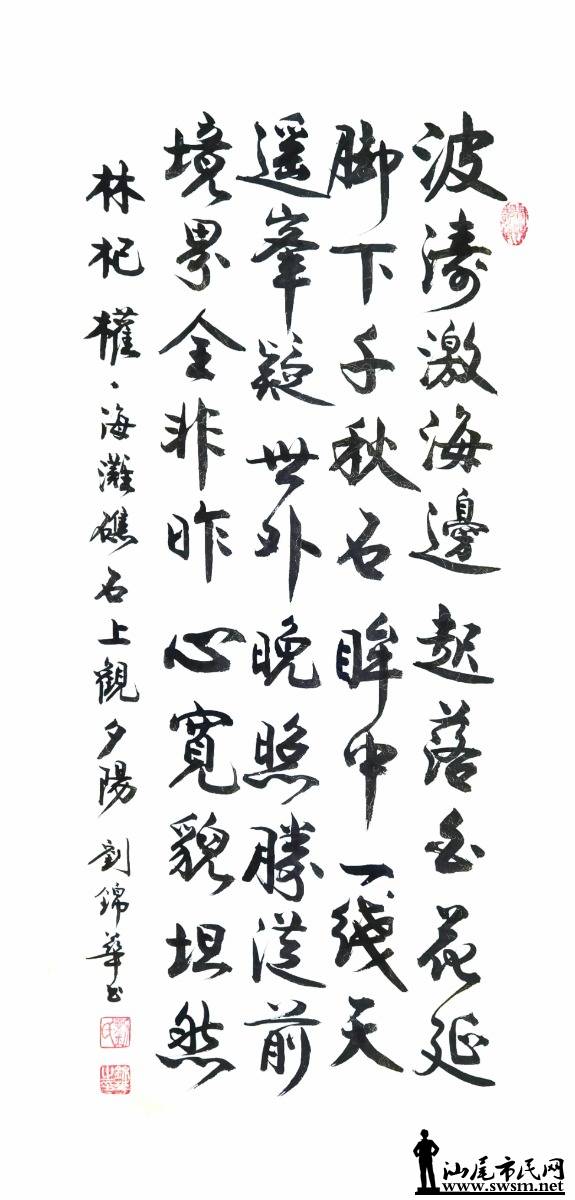 波濤激海邊起落白花延
脚下千秋石眸中一綫天
遥峯疑世外晚照勝從前
境界全非昨心寬貌坦然
林杞權、海灘礁石上觀夕陽 劉錦華书
汕尾市民网
www.swsm.net